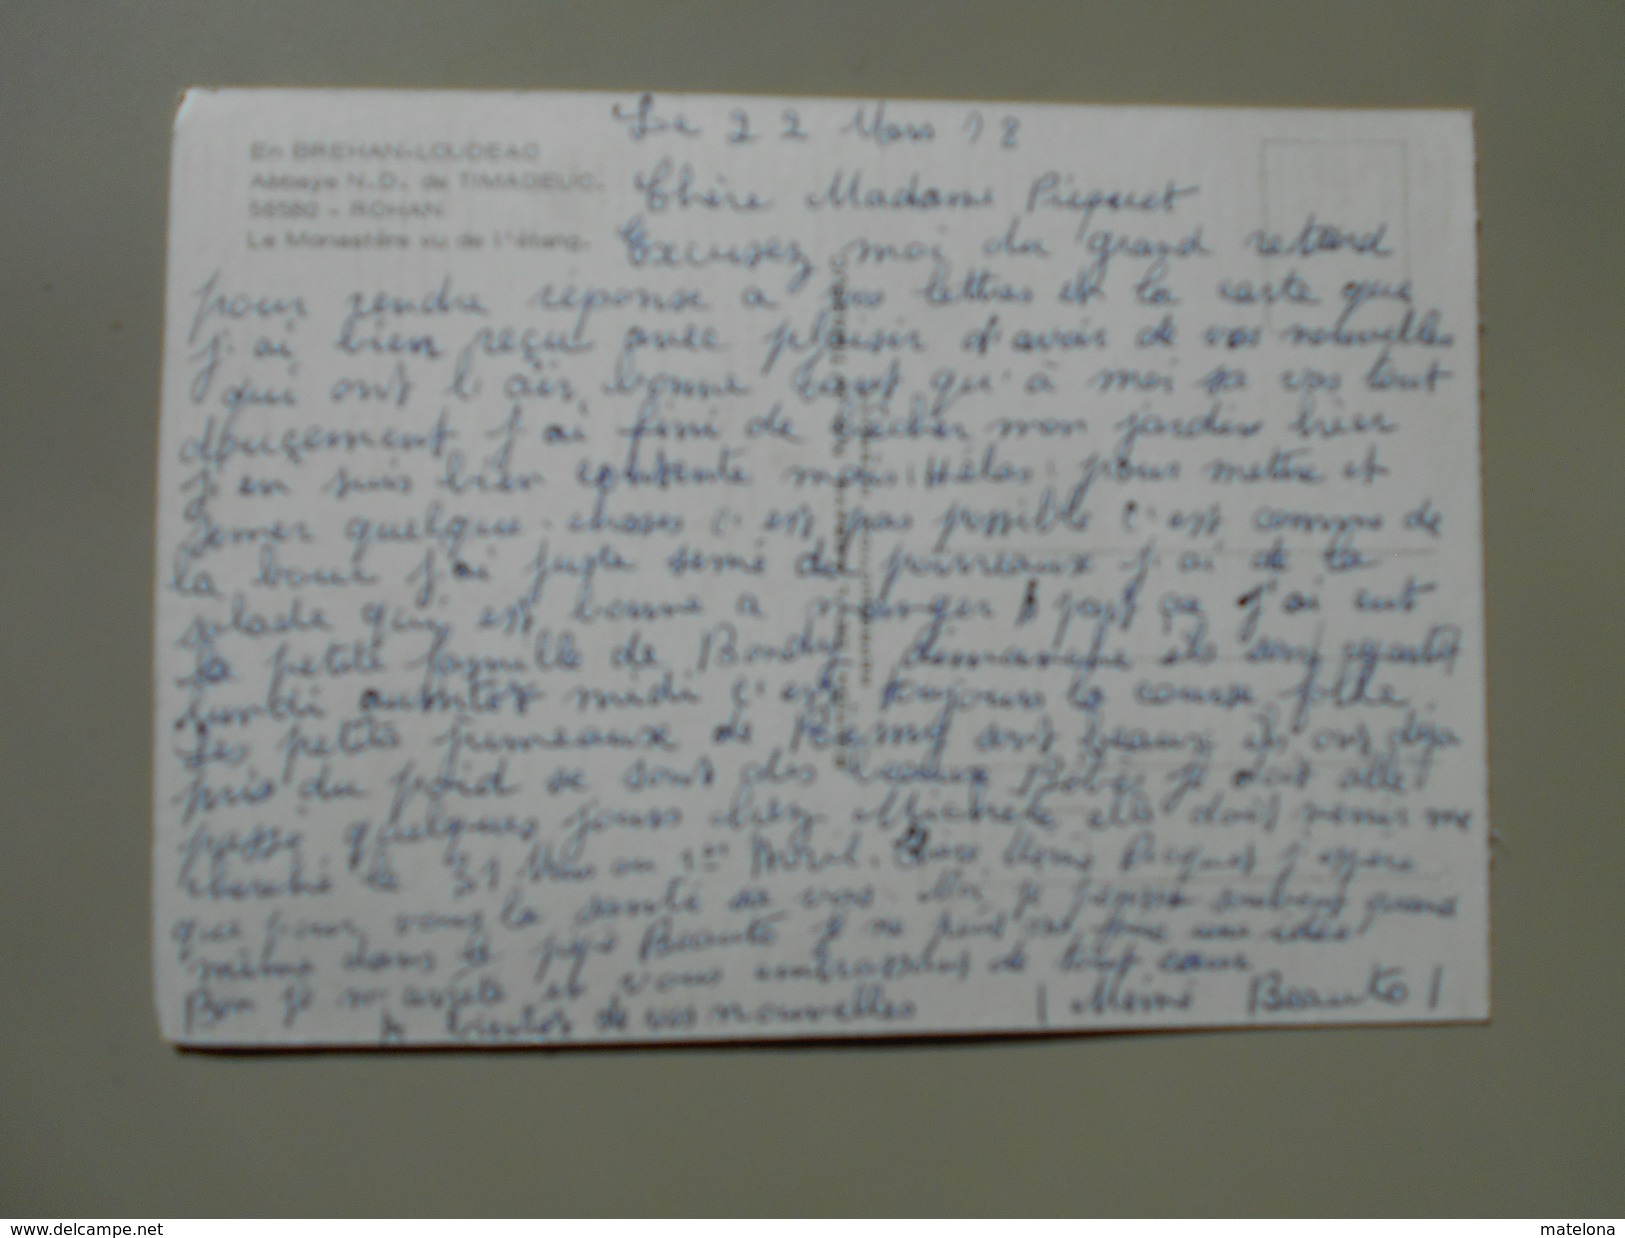 En BREHAN-LOUDEAC
Abbaye N.-D. de TIMADEUC.
56580 - ROHAN
Le Monastère vu de l'étang.
Le 22 Mars
Chère Madame Picquet
Excusez moi du grand retard
pour rendre réponse a vos lettres et la carte que
j'ai bien reçu avec plaisir d'avoir de vos nouvelles
qui ont l'air bonne tant qu'à moi sa vas tout
douçement j'ai fini de bêcher mon jardin hier
j'en suis bien contente mais Hélas pour mettre et
semer quelque choses c'est pas possible c'est comme de
la boue j'ai juste semé du poireaux j'ai de la
salade qui est bonne a manger a part ça j'ai eut
la petite famille de Bondy dimanche ils son repartit
lundi midi c'est toujours la course folle
Les petits jumeaux de Rémy sont beaux ils ont déja
pris du poid se sont des beaux Bébés je doit allé
passé quelques jours chez Michele elle doit venir me
cherché le 31 Mars ou 1er Avril. Chère Mémé Picquet j'espère
que pour vous la santé sa vas. Moi je
même dans le pays Beauté je ne peut me faire une idée
Bon je m'arrête et vous embrassant de tout cœur
A bientot de vos nouvelles
Mémé Beauté
delcampe.net
matelona